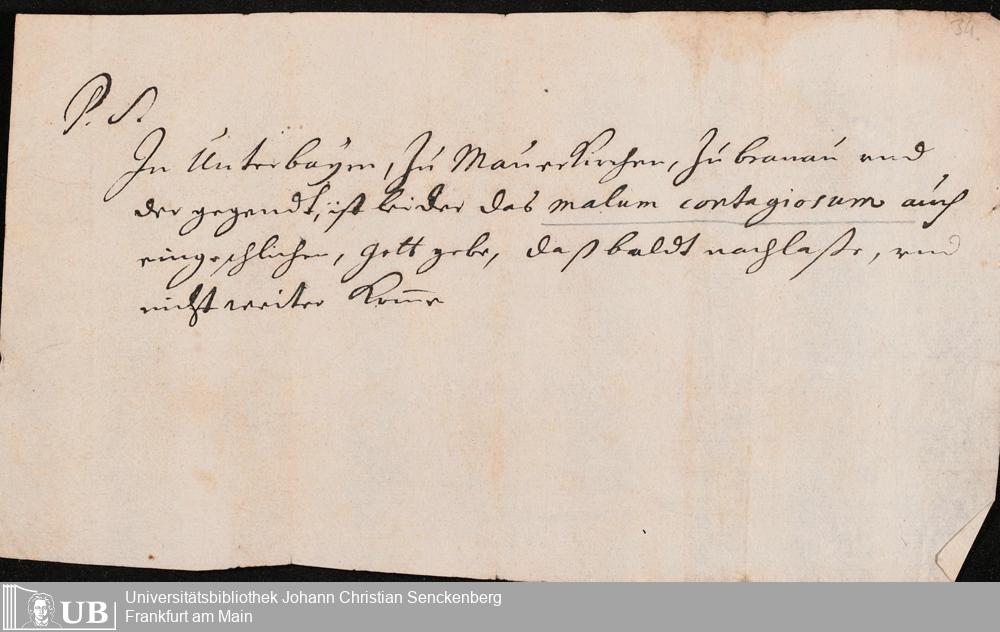 34.
P. S.
In Unterbayrn, Zu Mauerkirchen, Zu branau vnd
der gegendt, ist leider das malum contagiosum auch
eingeschlichen, Gott gebe, daß baldt nachlaße, vnd
nicht weiter kome
UB
Universitätsbibliothek Johann Christian Senckenberg
Frankfurt am Main